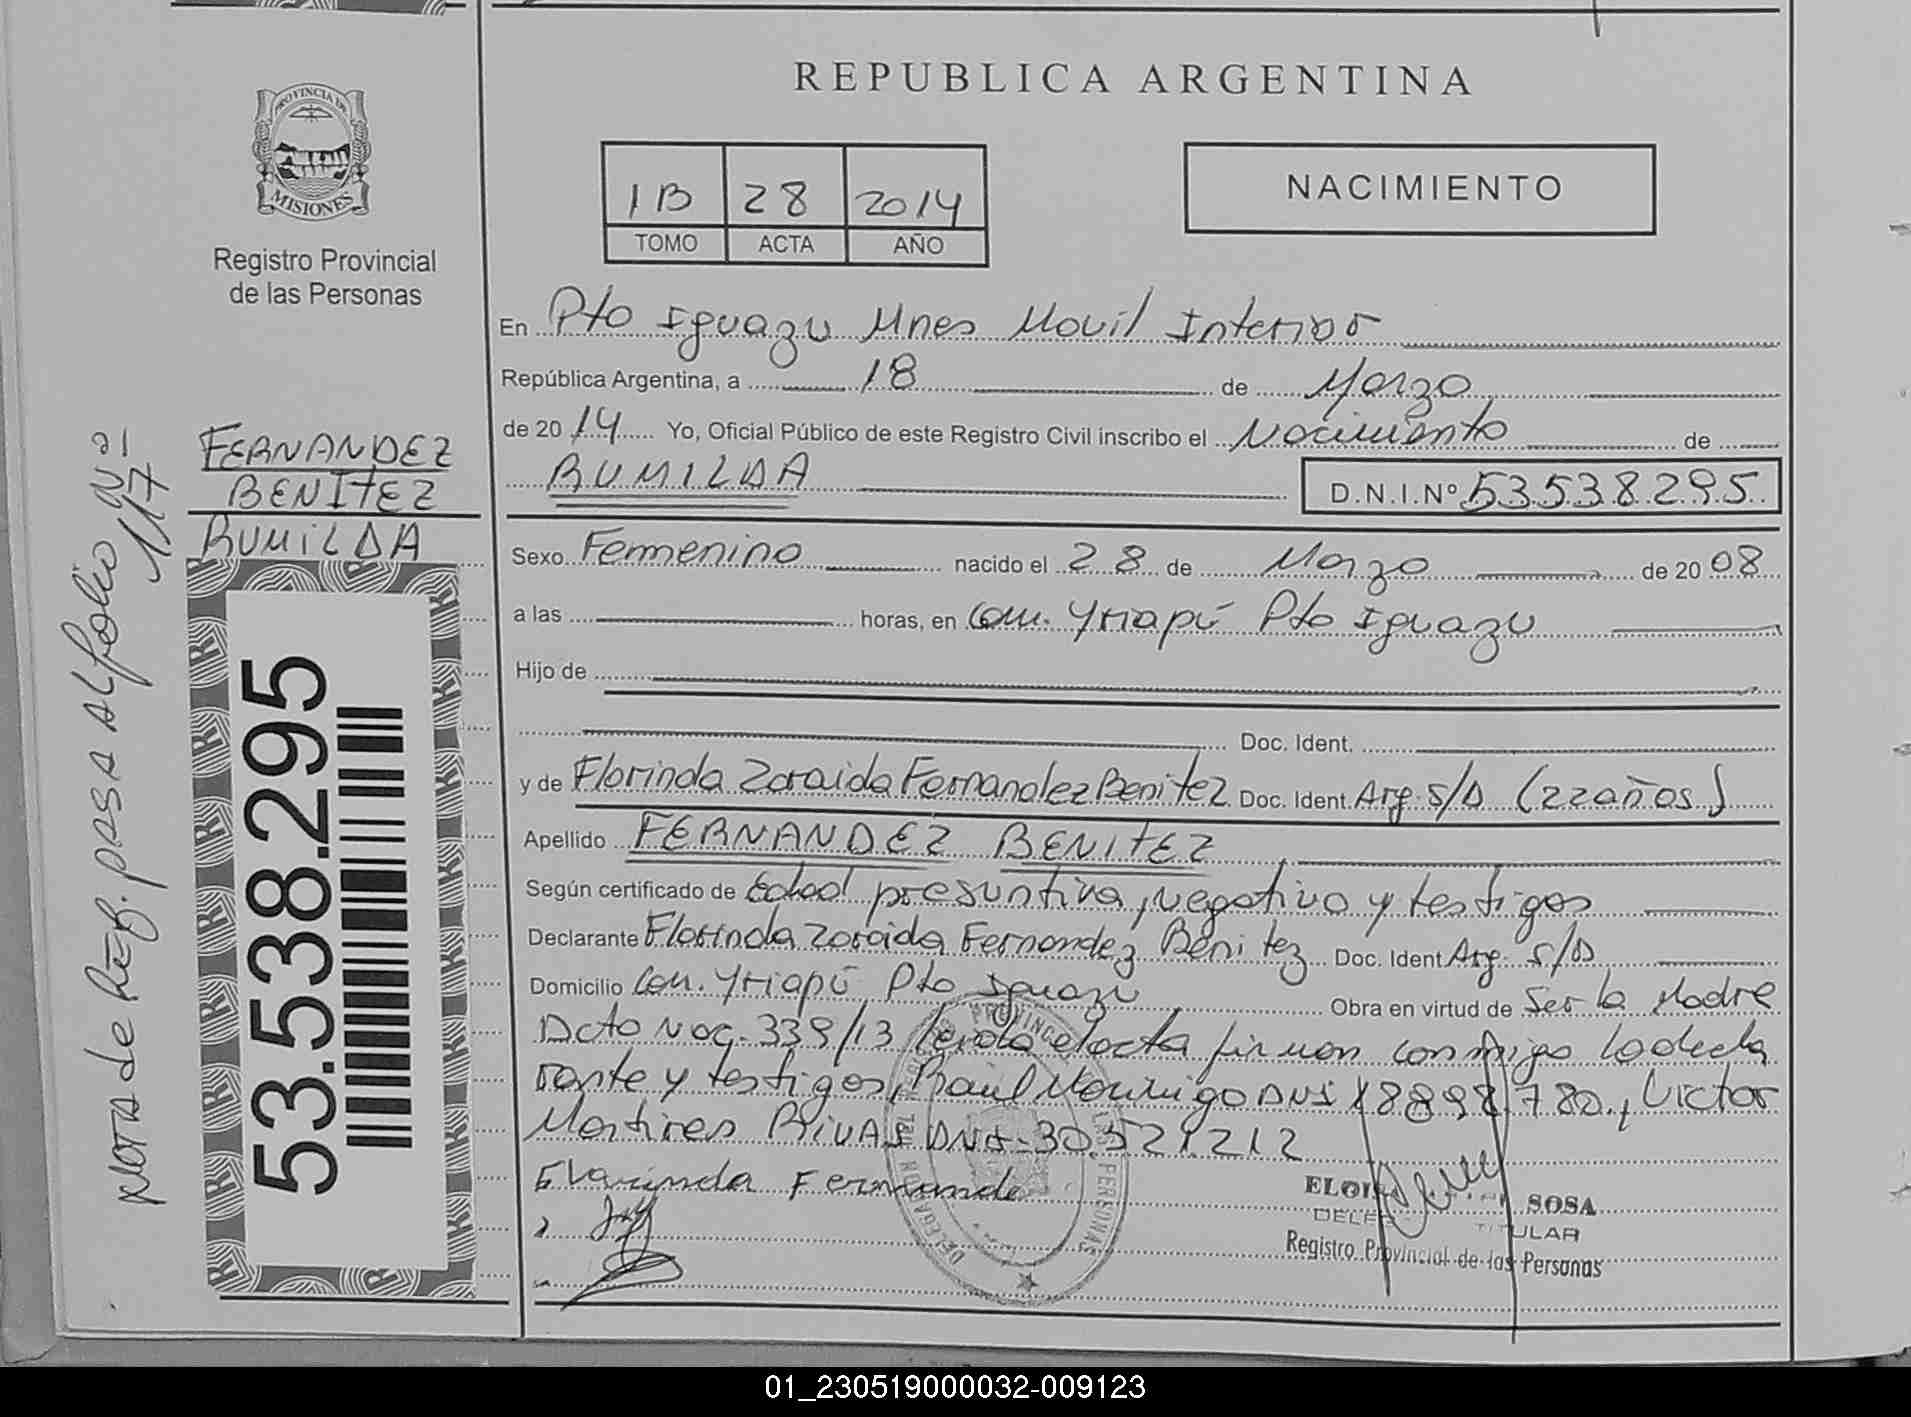 REPUBLICA ARGENTINA
PROVINCIA DE
MISIONES
Registro Provincial
de las Personas
1B 28 2014
TOMO ACTA AÑO
NACIMIENTO
En Pto Iguazu Mnes Movil Interior
República Argentina, a 18 de Marzo
de 2014 Yo, Oficial Público de este Registro Civil inscribo el Nacimiento de
RUMILDA D.N.I.Nº 53538295
FERNANDEZ
BENITEZ
RUMILDA
Sexo Femenino nacido el 28 de Marzo de 2008
a las horas, en Com. Yriapú Pto Iguazu
Hijo de
Doc. Ident.
y de Florinda Zoraida Fernandez Benitez Doc. Ident. Arg. S/D (22años)
Apellido FERNANDEZ BENITEZ
Según certificado de Edad presuntiva, negativo y testigos
Declarante Florinda Zoraida Fernandez Benitez Doc. Ident Arg. S/D
Domicilio Com. Yriapú Pto Iguazu Obra en virtud de Ser la Madre
Dcto Nac. 339/13 leida el acta firman conmigo la decla
rante y testigos, Raul DNI 18898780, Victor
Martires RIVAS DNI-30.521.212
Flarinda Fernande
ELOI SOSA
TITULAR
Registro Provincial de las Personas
53.538.295
NOTA de Ref. pasa al folio Nº
117-
01_230519000032-009123